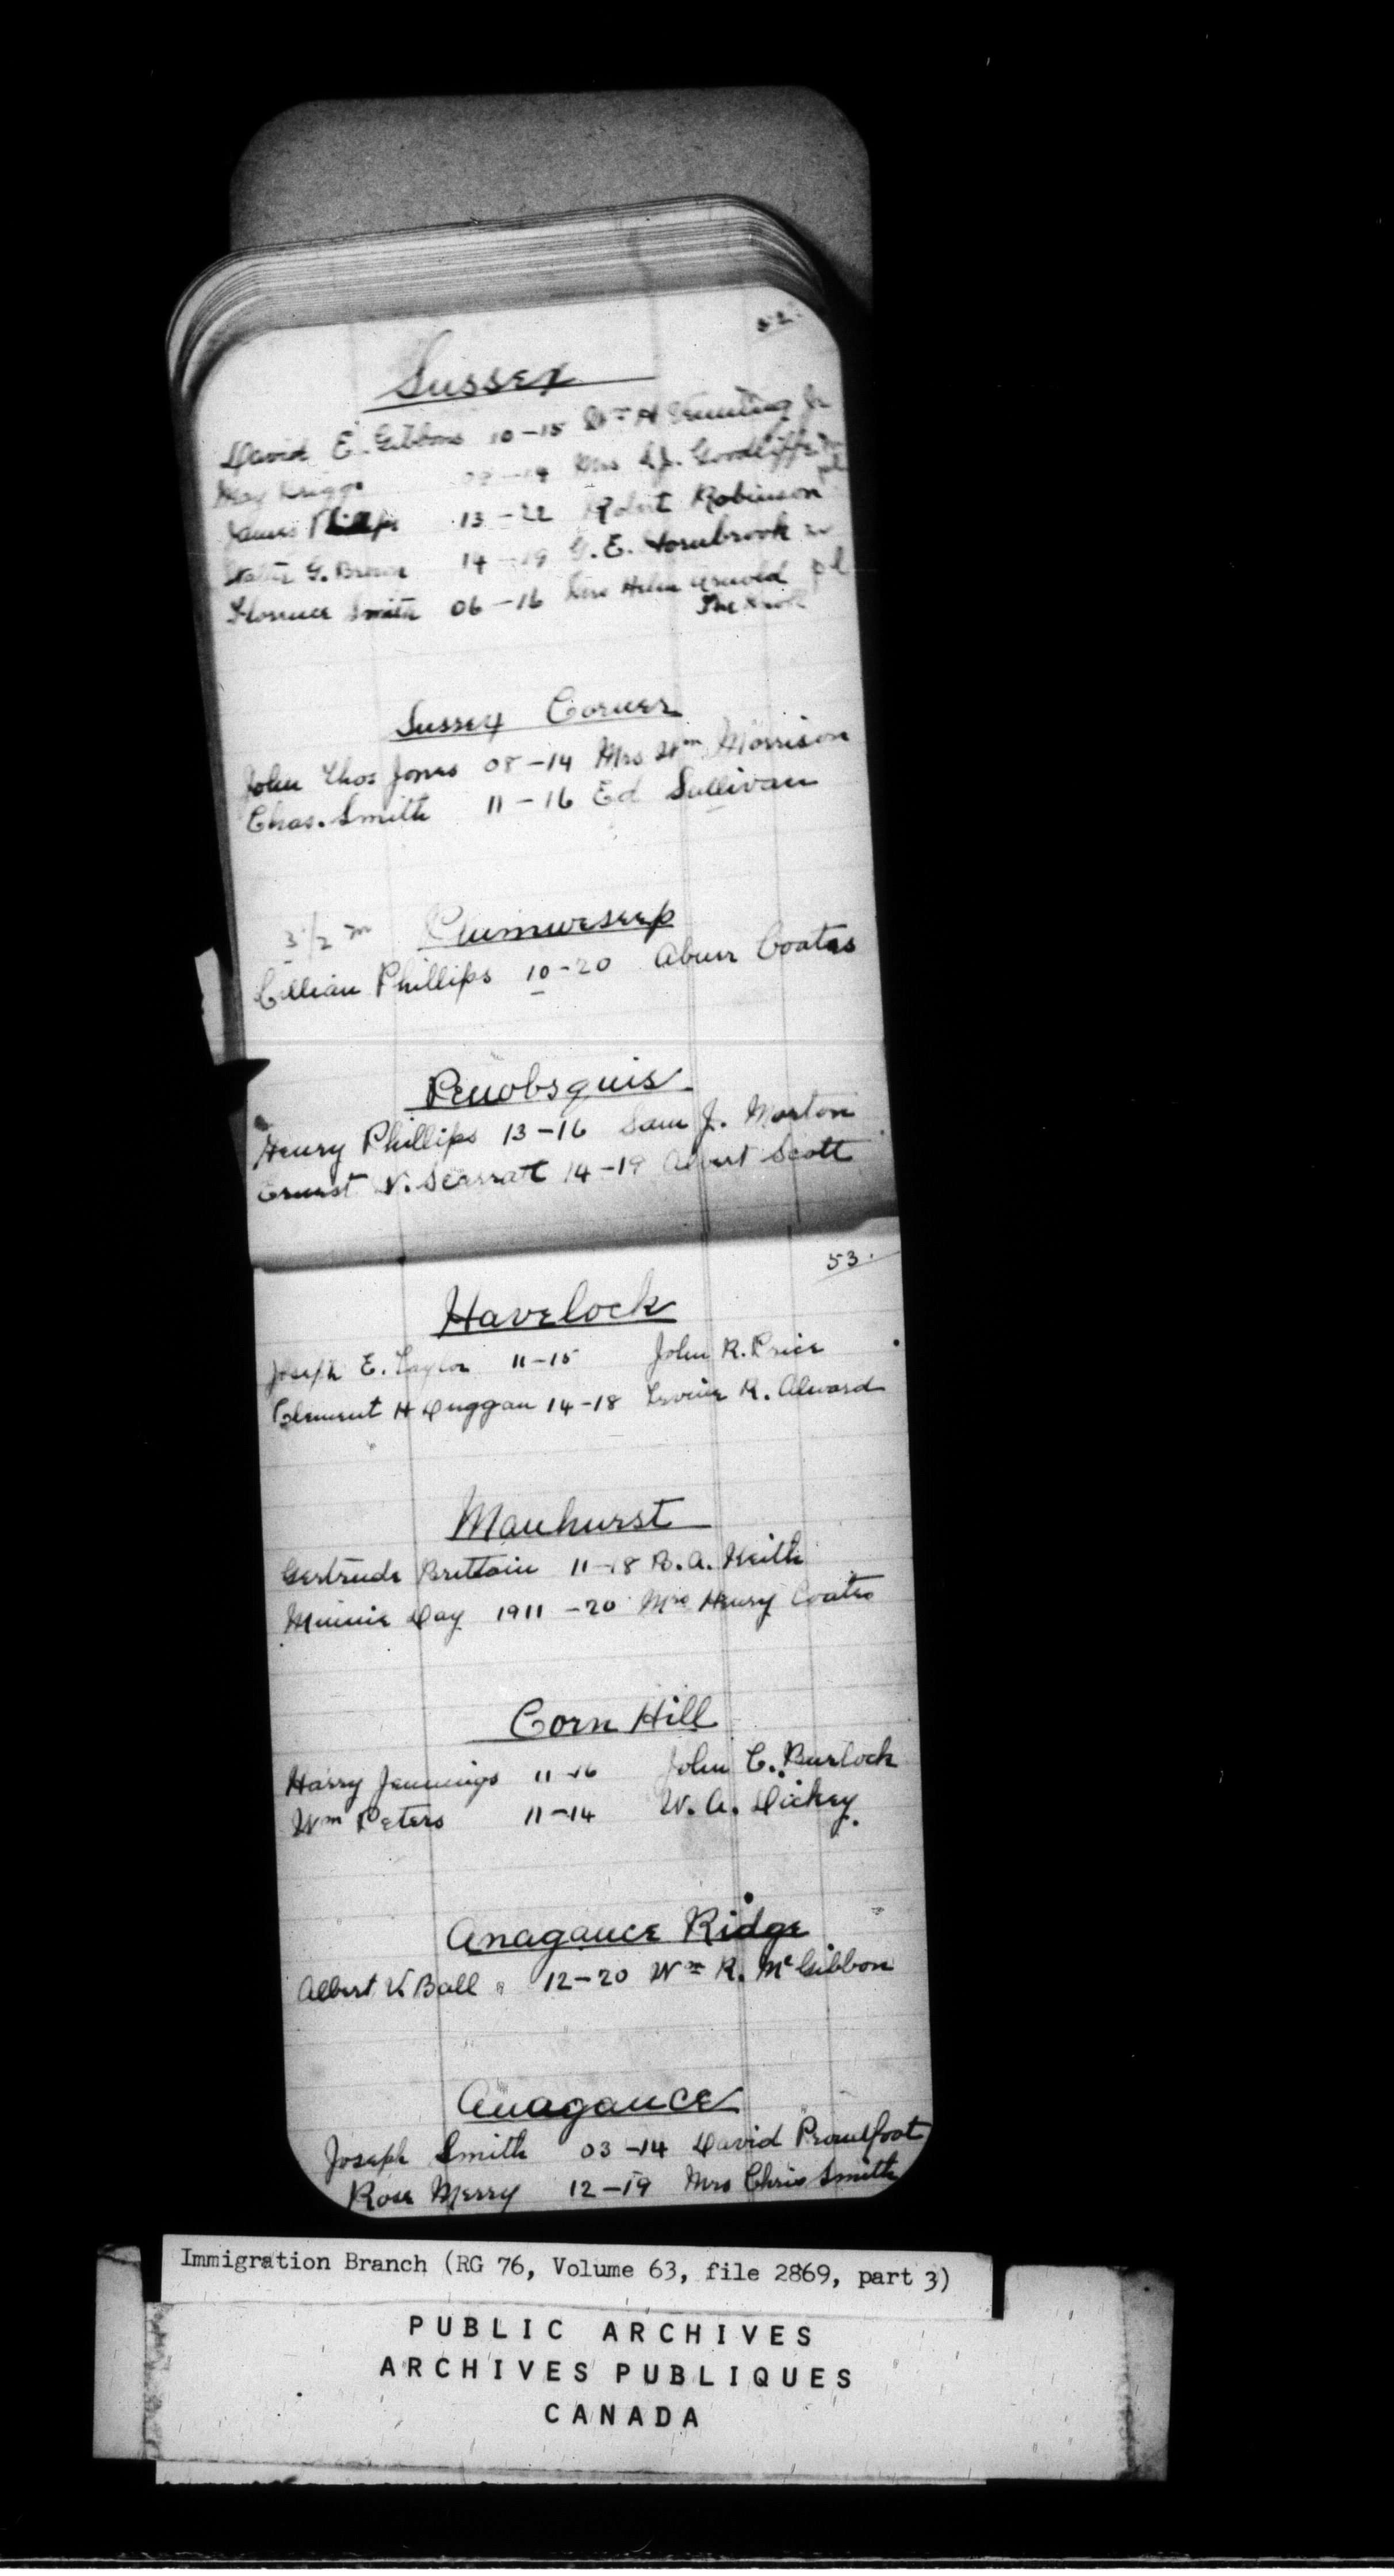 52.
Sussex
David E. Gibbons 10-15 Wm H
08-14 Mrs Goodliffe
James 13-22 Robert Robinson
G. Brown 14-19 G. E. Hornbrook
Florence Smith 06-16 Helen Arnold pl
The Knoll
Sussex Corner
John Thos Jones 08-14 Mrs Wm Morrison
Chas. Smith 11-16 Ed Sullivan
3 1/2 m Plumweseep
Lillian Phillips 10-20 Abner Coates
Penobsquis
Henry Phillips 13-16 Sam J. Morton
Ernest V. Scarratt 14-19 Albert Scott
53.
Havelock
Joseph E. Taylor 11-15 John R. Price
Clement H Duggan 14-18 R. Alward
Manhurst
Gertrude Brittain 11-18 B. A. Keith
Minnie Day 1911-20 Mrs Henry Coates
Corn Hill
Harry Jennings 11-16 John C. Burlock
Wm Peters 11-14 W. A. Dickey.
Anagance Ridge
Albert V Ball 12-20 Wm R. McGibbon
Anagance
Joseph Smith 03-14 David Proudfoot
Rose Merry 12-19 Mrs Chris Smith
Immigration Branch (RG 76, Volume 63, file 2869, part 3)
PUBLIC ARCHIVES
ARCHIVES PUBLIQUES
CANADA